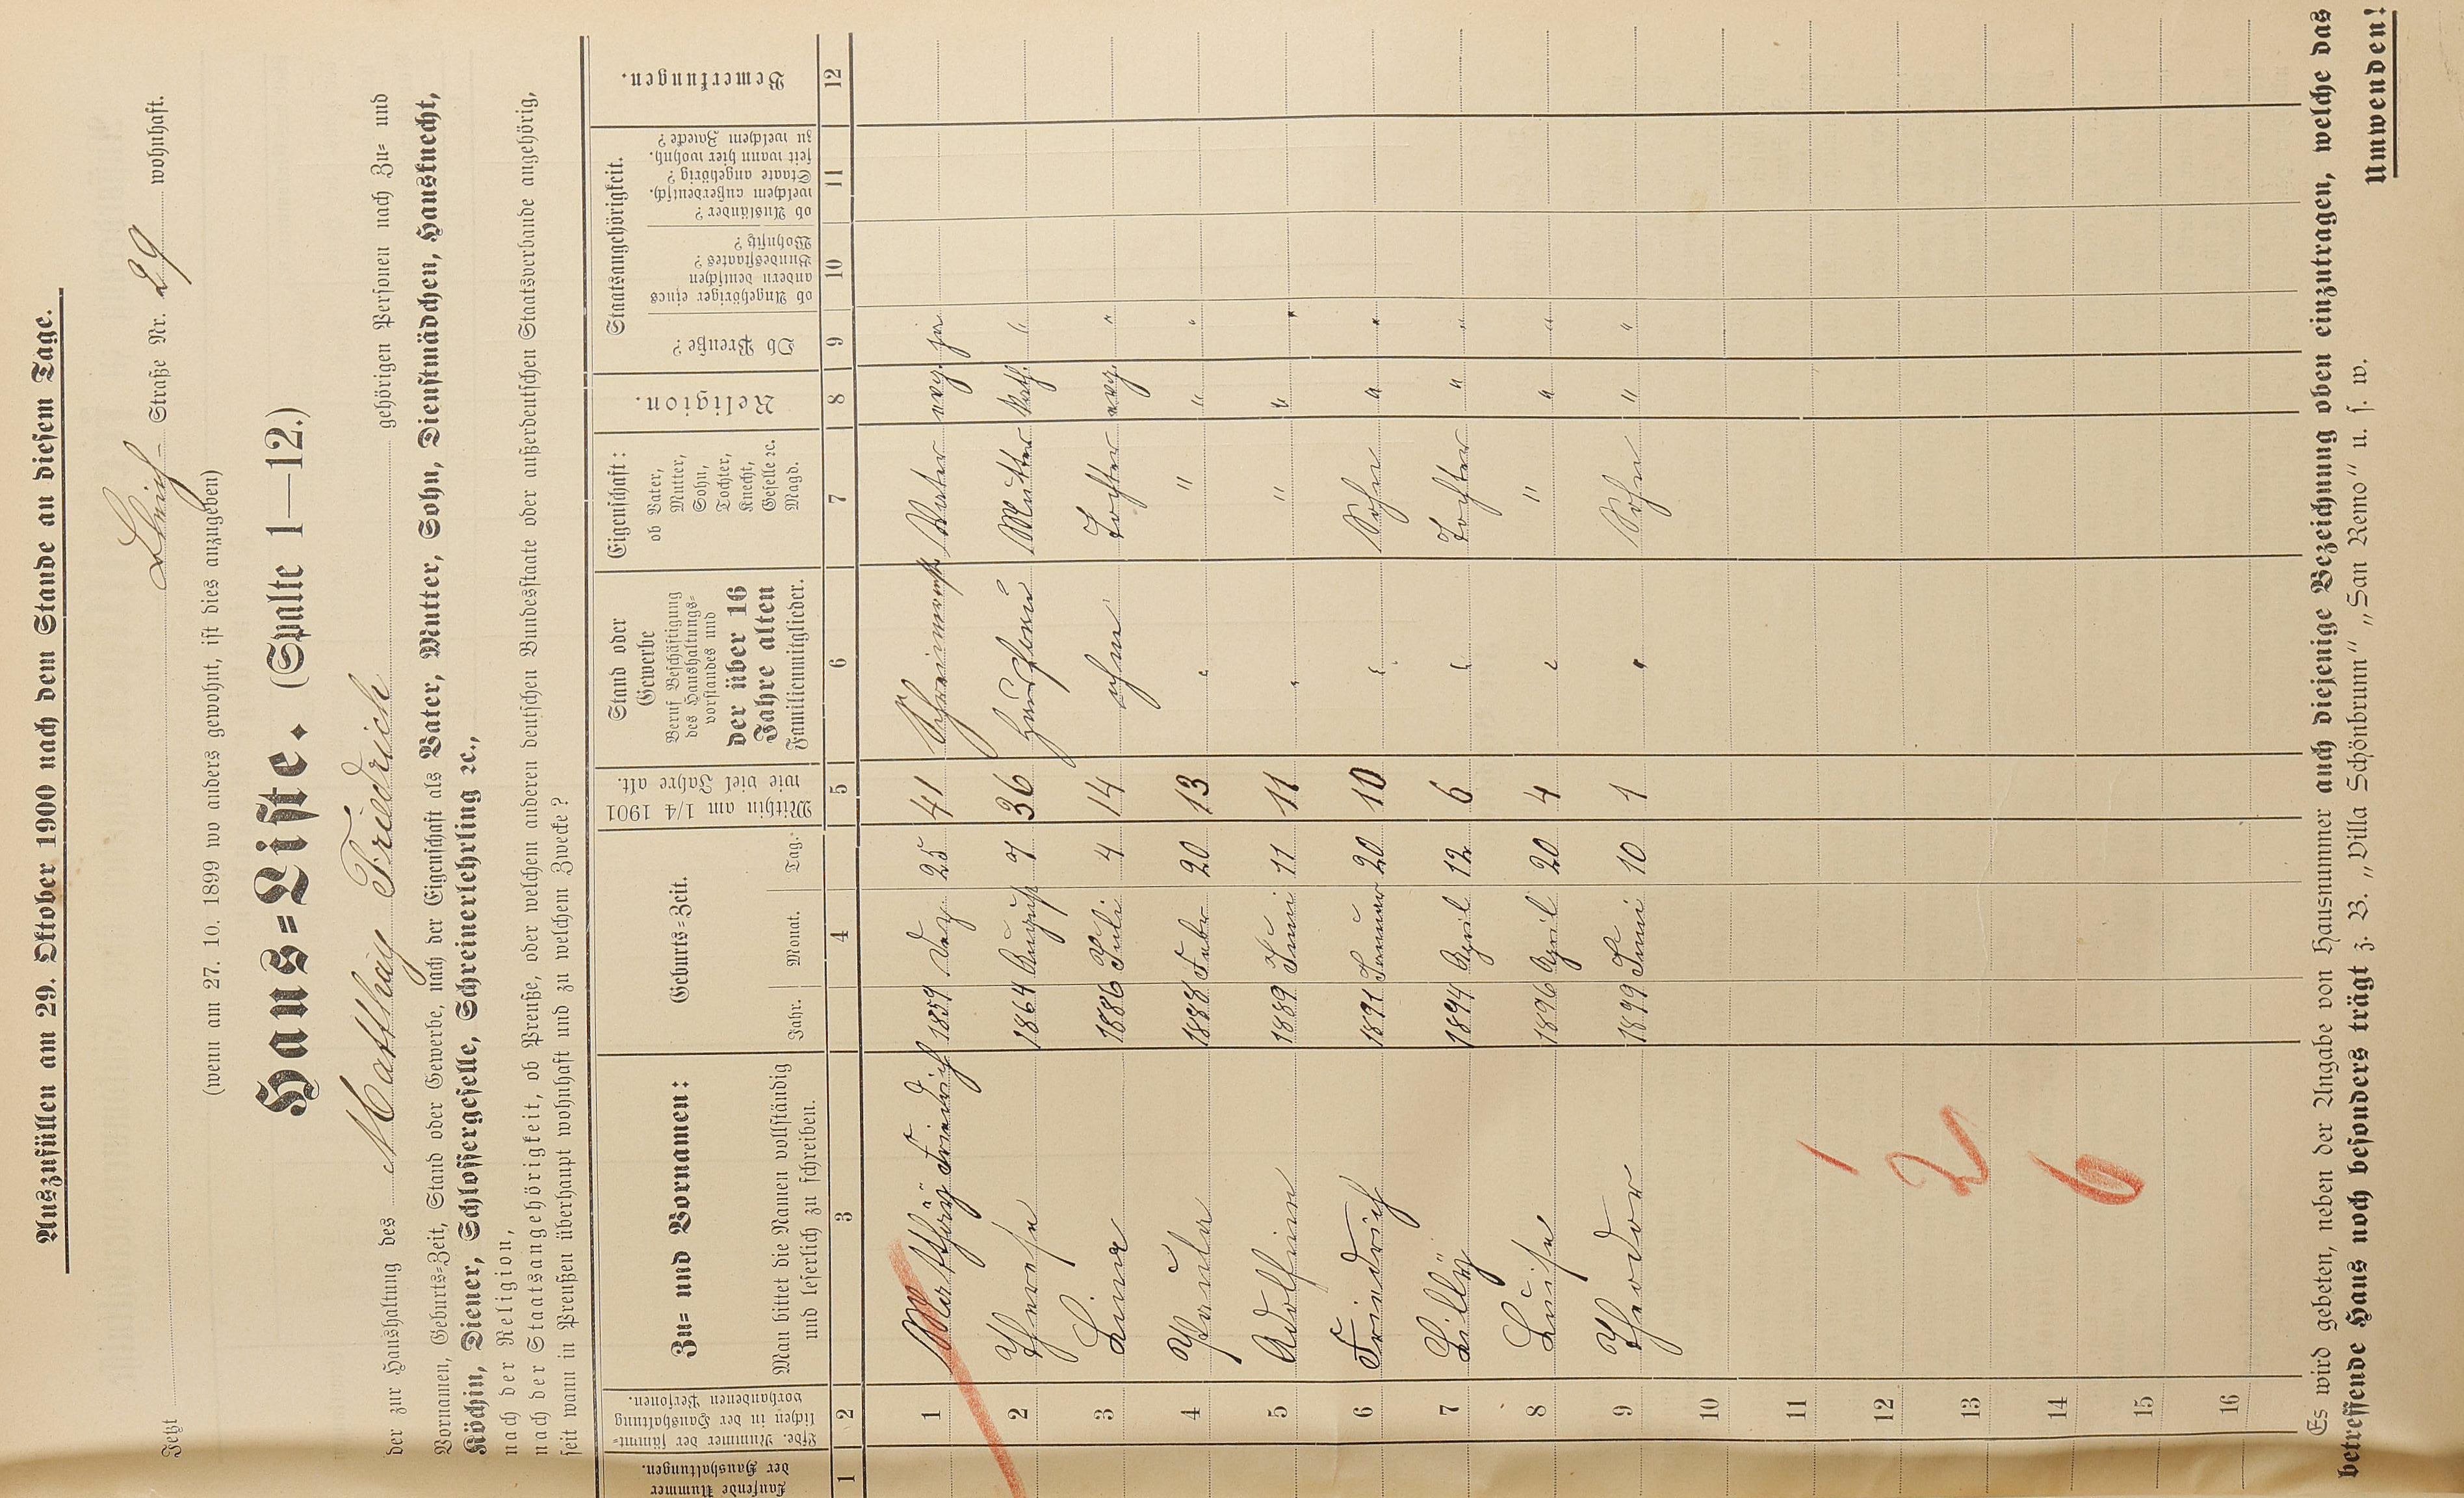 Auszufüllen am 29. Oktober 1900 nach dem Stande an diesem Tage.
Jetzt Straße Nr. 29 wohnhaft.
(wenn am 27. 10. 1899 wo anders gewohnt, ist dies anzugeben)
Haus=Liste. (Spalte 1—12.)
der zur Haushaltung des Matthäy Friedrich gehörigen Personen nach Zu= und
Vornamen, Geburts=Zeit, Stand oder Gewerbe, nach der Eigenschaft als Vater, Mutter, Sohn, Dienstmädchen, Hausknecht,
Köchin, Diener, Schlossergeselle, Schreinerlehrling ꝛc.,
nach der Religion,
nach der Staatsangehörigkeit, ob Preuße, oder welchem anderen deutschen Bundesstaate oder außerdeutschen Staatsverbande angehörig,
seit wann in Preußen überhaupt wohnhaft und zu welchem Zwecke?
Laufende Nummer der Haushaltungen.
Lfde. Nummer der sämmt=lichen in der Haushaltung vorhandenen Personen.
Zu= und Vornamen:
Man bittet die Namen vollständig und leserlich zu schreiben.
Geburts=Zeit.
Jahr. Monat. Tag.
Mithin am 1/4 1901 wie viel Jahre alt.
Stand oder Gewerbe
Beruf Beschäftigung des Haushaltungs=vorstandes und
der über 16 Jahre alten Familienmitglieder.
Eigenschaft:
ob Vater, Mutter, Sohn, Tochter, Knecht, Geselle ꝛc. Magd.
Religion.
Staatsangehörigkeit.
Ob Preuße?
ob Angehöriger eines andern deutschen Bundesstaates? Wohnsitz?
ob Ausländer? welchem außerdeutsch. Staate angehörig? seit wann hier wohnh. zu welchem Zwecke?
Bemerkungen.
1 2 3 4 5 6 7 8 9 10 11 12
1 Matthäy Friedrich 1859 Dez 25 41 Vater evg. ja
2 Therese 1864 August 7 36 Hausfrau Mutter kath. "
3 Lina 1886 Juli 4 14 ohne Tochter evg. "
4 Paula 1888 Febr 20 13 " " " "
5 Adolfine 1889 Juni 11 11 " " " "
6 Friedrich 1891 Januar 20 10 " Sohn " "
7 Lilly 1894 April 12 6 " Tochter " "
8 Luise 1896 April 20 4 " " " "
9 Theodor 1899 Juni 10 1 " Sohn " "
10
11 1
12 2
13
14 6
15
16
Es wird gebeten, neben der Angabe von Hausnummer auch diejenige Bezeichnung oben einzutragen, welche das
betreffende Haus noch besonders trägt z. B. „Villa Schönbrunn" „San Remo" u. s. w.
Umwenden!